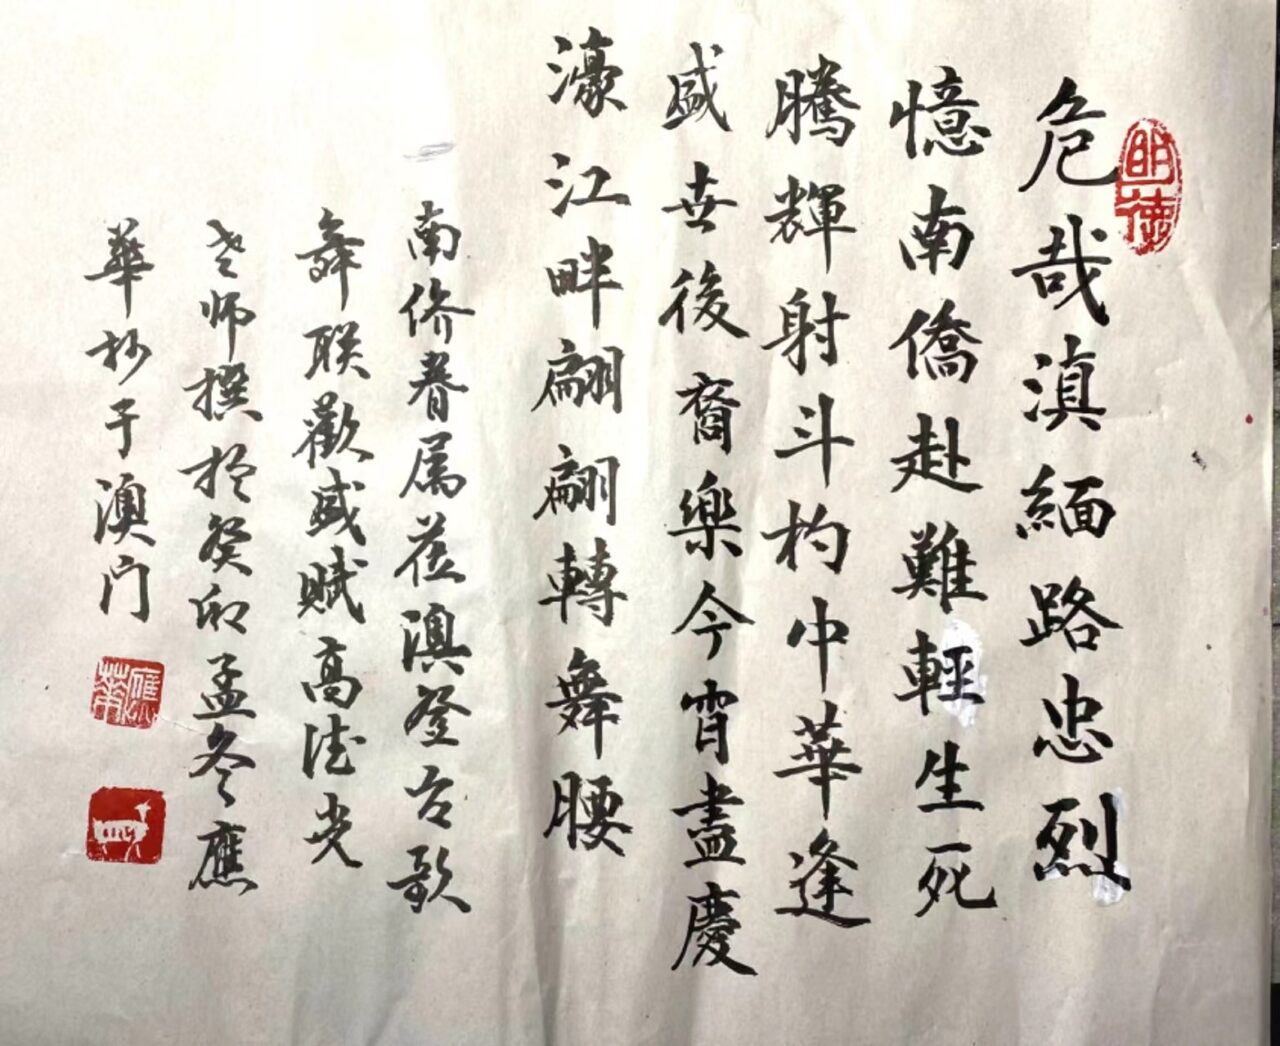 明德
危哉滇緬路忠烈
憶南僑赴難輕生死
騰輝射斗杓中華逢
盛世後裔樂今宵盡慶
濠江畔翩翩轉舞腰
南侨眷属莅澳登台歌
舞联歡感賦高德光
老师撰於癸卯孟冬應
華抄于澳门
應華